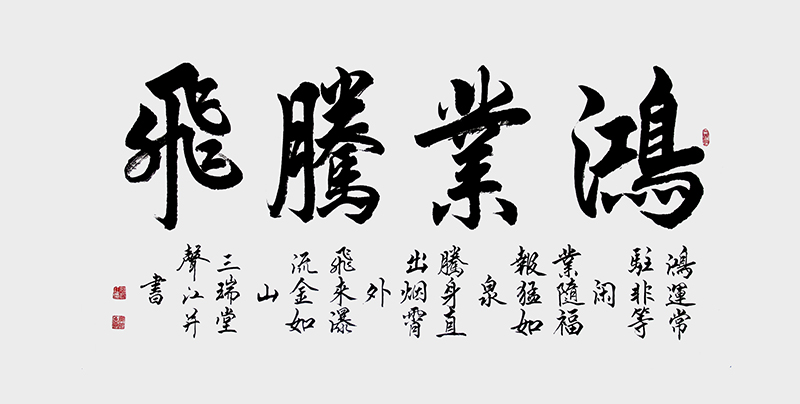 鴻業騰飛
鴻運常
駐非等
闲
業隨福
報猛如
泉
騰身直
出烟霄
外
飛来瀑
流金如
山
三瑞堂
聲江并
書